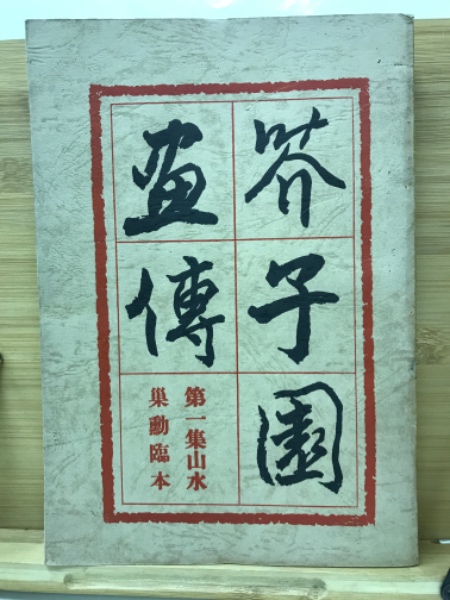 芥子園
畫傳
第一集山水
巢勳臨本